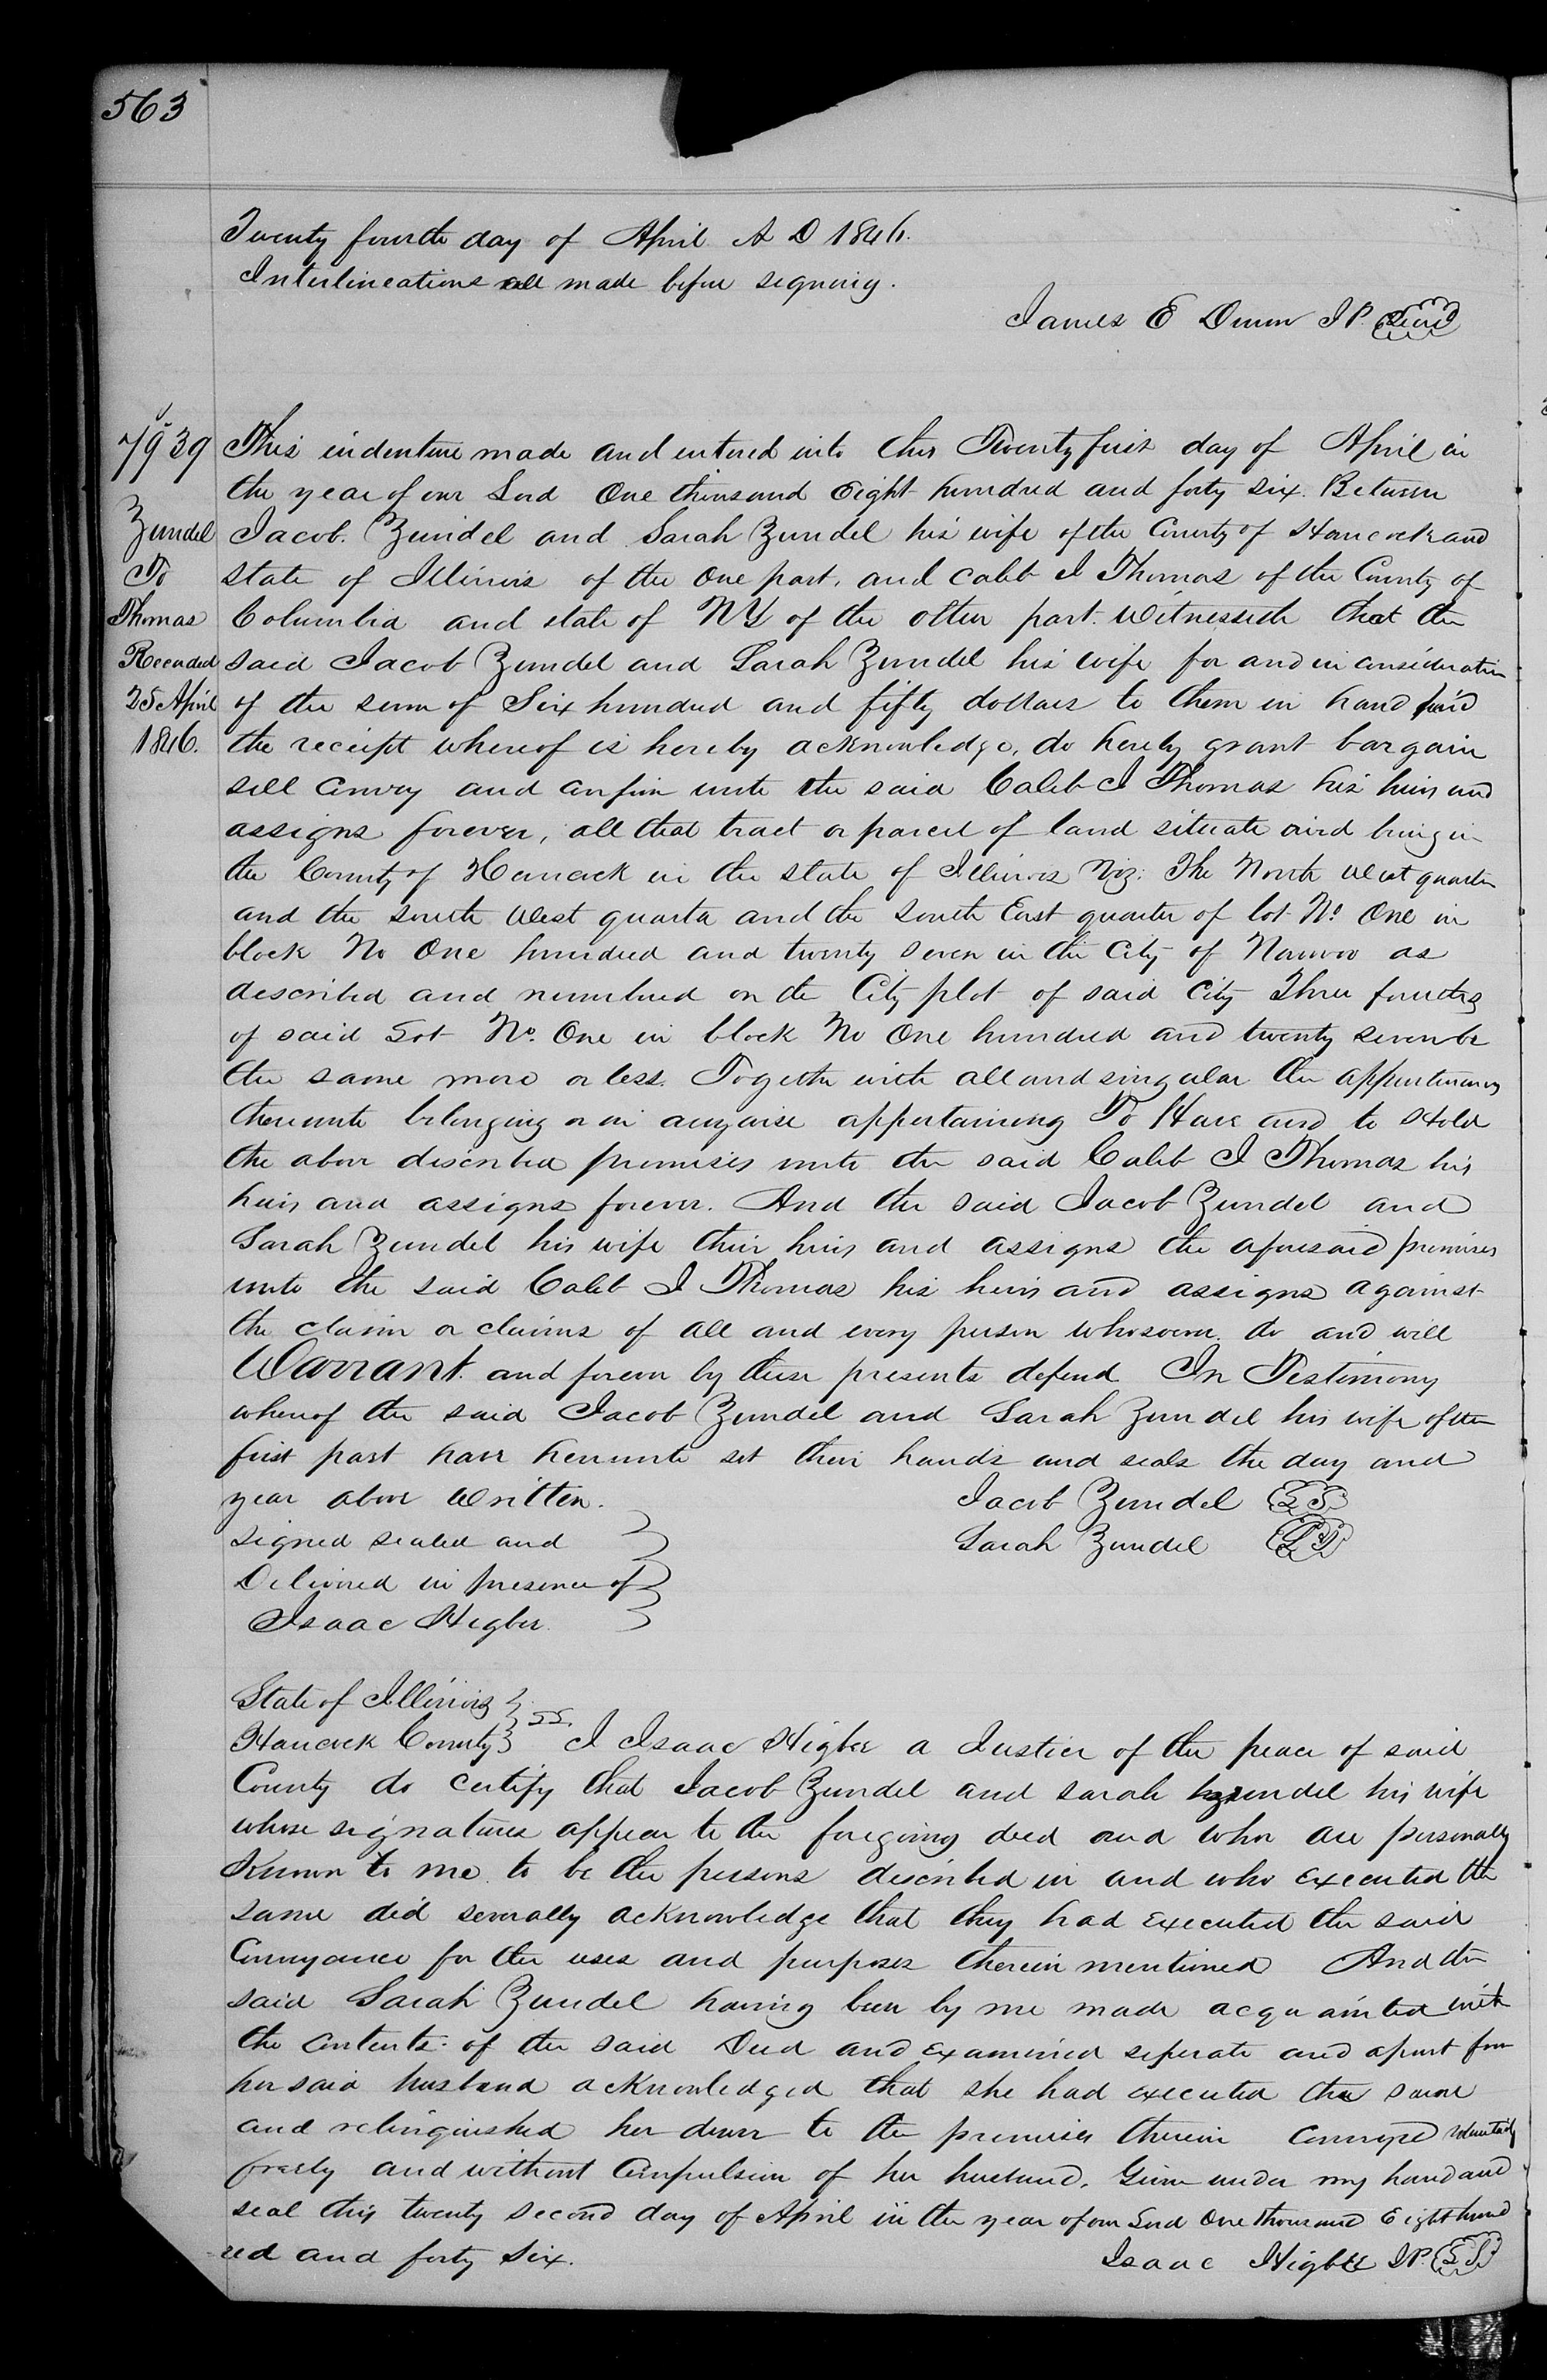 563
Twenty fourth day of April A D 1846.
Interlineations all made before signing.
James E Dunn J P. Seal
7939
Zundel
To
Thomas
Recorded
25 April
1846.
This indenture made and entered into this Twenty first day of April in
the year of our Lord One thousand Eight hundred and forty six. Between
Jacob. Zundel and Sarah Zundel his wife of the County of Hancock and
State of Illinois of the One part. and Caleb J Thomas of the County of
Columbia and state of NY of the other part. Witnesseth that the
said Jacob Zundel and Sarah Zundel his wife for and in consideration
of the sum of Six hundred and fifty dollars to them in hand paid
the receipt whereof is hereby acknowledge, do hereby grant bargain
sell convey and confirm unto the said Caleb J Thomas his heirs and
assigns forever, all that tract or parcel of land situate and being in
the County of Hancock in the state of Illinois Viz: The North West quarter
and the south West quarter and the South East quarter of lot No. One in
block No One hundred and twenty seven in the City of Nauvoo as
described and numbered on the City plot of said City Three fourths
of said Lot No. One in block No One hundred and twenty seven be
the same more or less. Together with all and singular the appurtenances
thereunto belonging or in anywise appertaining To Have and to Hold
the above described premises unto the said Caleb J Thomas his
heirs and assigns forever. And the said Jacob Zundel and
Sarah Zundel his wife their heirs and assigns the aforesaid premises
unto the said Caleb J Thomas his heirs and assigns against
the claim or claims of all and every person whosoever. do and will
Warrant. and forever by these presents defend In Testimony
whereof the said Jacob Zundel and Sarah Zundel his wife of the
first part have hereunto set their hands and seals the day and
year above Written. Jacob Zundel L S
signed sealed and Sarah Zundel L S
Delivered in presence of
Isaac Higbee.
State of Illinois
Hancock County SS. I Isaac Higbee a Justice of the peace of said
County do certify that Jacob Zundel and Sarah Zundel his wife
whose signatures appear to the foregoing deed and who are personally
Known to me. to be the persons described in and who executed the
same did severally acknowledge that they had executed the said
Conveyance for the uses and purposes therein mentioned And the
said Sarah Zundel having been by me made acquainted with
the contents of the said Deed and examined seperate and apart from
her said husband acknowledged that she had executed the same
and relinquished her dower to the premises therein conveyed voluntarily
freely and without Compulsion of her husband. Given under my hand and
seal this twenty second day of April in the year of our Lord One thousand Eight hund
red and forty six. Isaac Higbee JP. L S